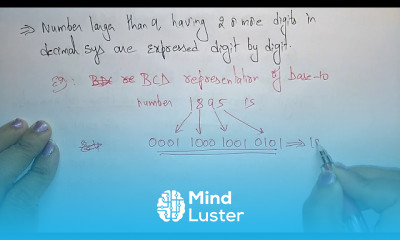 ⇒ Number larga than 9 having 2 or more digits in
decimal sys are expressed digit by digit.
Eg: BCD representation of base-10
Number 1895 is
0001 1000 1001 0101 ⇒ 18
Mind
Luster